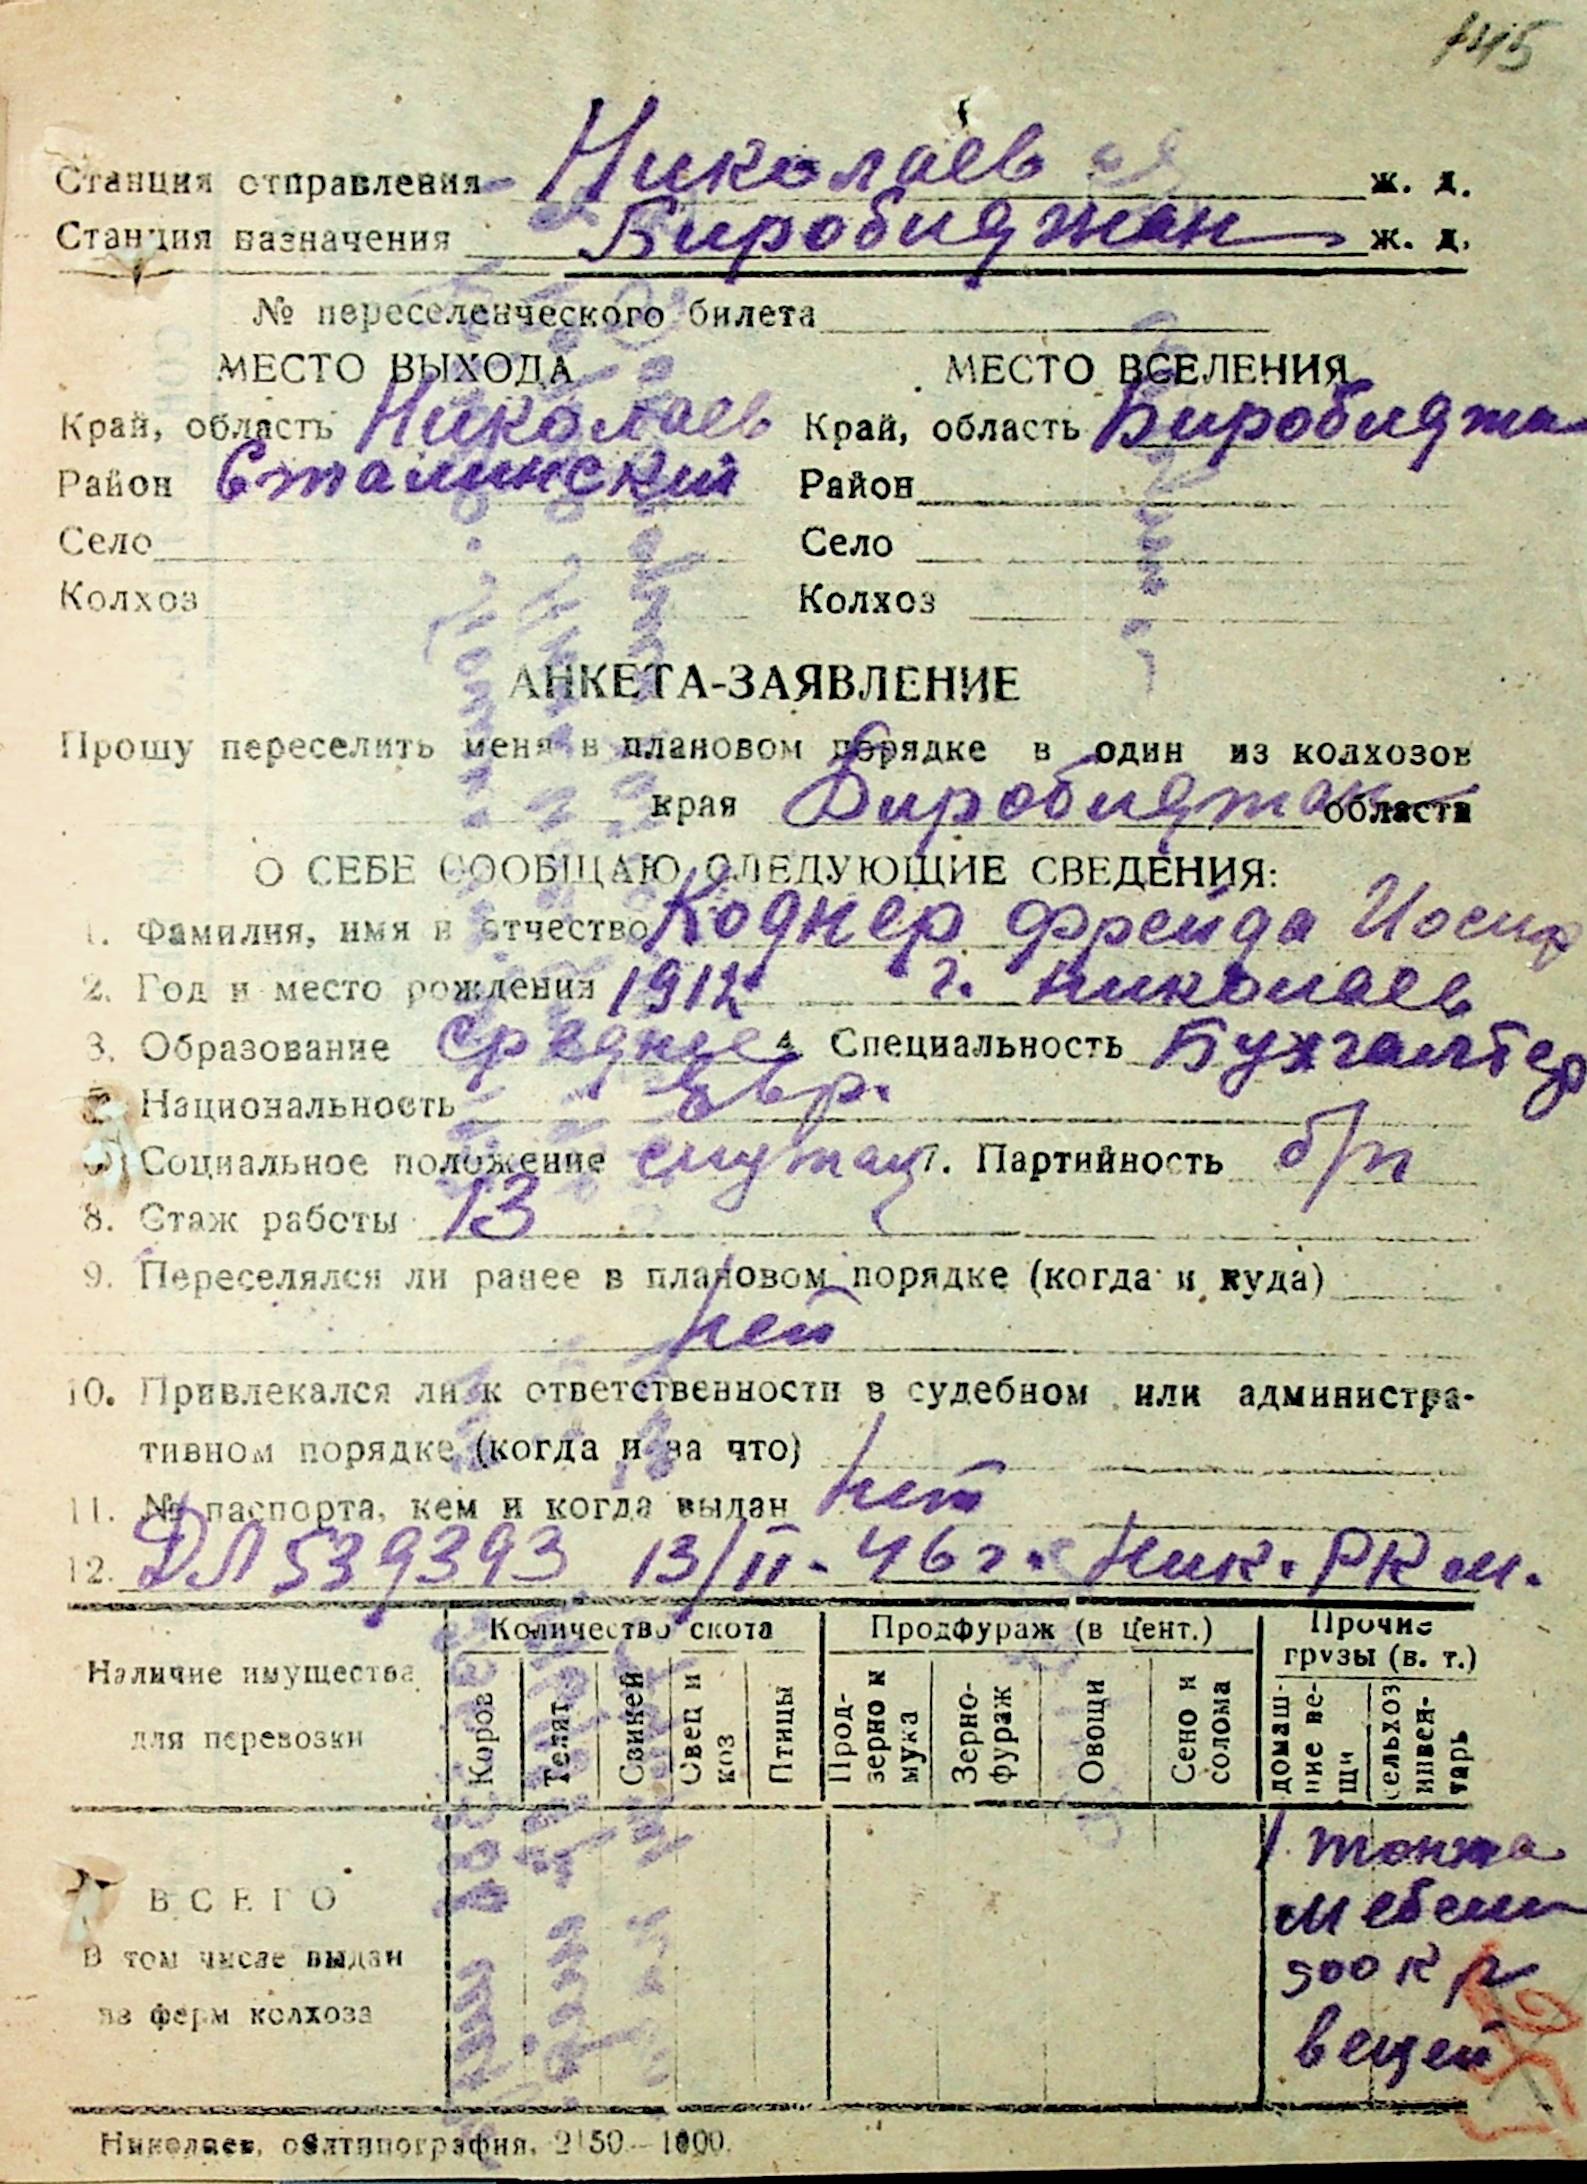 145
Станция отправления Николаев ж. д.
Станция назначения Биробиджан ж. д.
№ переселенческого билета
МЕСТО ВЫХОДА МЕСТО ВСЕЛЕНИЯ
Край, область Николаев Край, область Биробиджан
Район Сталинский Район
Село Село
Колхоз Колхоз
АНКЕТА-ЗАЯВЛЕНИЕ
Прошу переселить меня в плановом порядке в один из колхозов
края Биробиджан области
О СЕБЕ СООБЩАЮ СЛЕДУЮЩИЕ СВЕДЕНИЯ:
1. Фамилия, имя и отчество Коднер Фрейда Иосиф
2. Год и место рождения 1912 г. Николаев
3. Образование среднее 4. Специальность Бухгалтер
5. Национальность Евр.
6. Социальное положение служащ 7. Партийность б/п
8. Стаж работы 13
9. Переселялся ли ранее в плановом порядке (когда и куда)
Нет
10. Привлекался ли к ответственности в судебном или администра-
тивном порядке (когда и за что)
11. № паспорта, кем и когда выдан нет
12. ДЛ 539393 13/II-46 г. Ник. РКМ.
Наличие имущества для перевозки
Количество скота Продфураж (в цент.) Прочие грузы (в. т.)
Коров Телят Свиней Овец и коз Птицы Прод-зерно и мука Зерно-фураж Овощи Сено и солома домаш-ние ве-щи сельхоз инвен-тарь
ВСЕГО
В том числе выдан
из ферм колхоза
1 тонна
мебели
500 кг
вещей
Николаев, облтипография, 2150—1000.